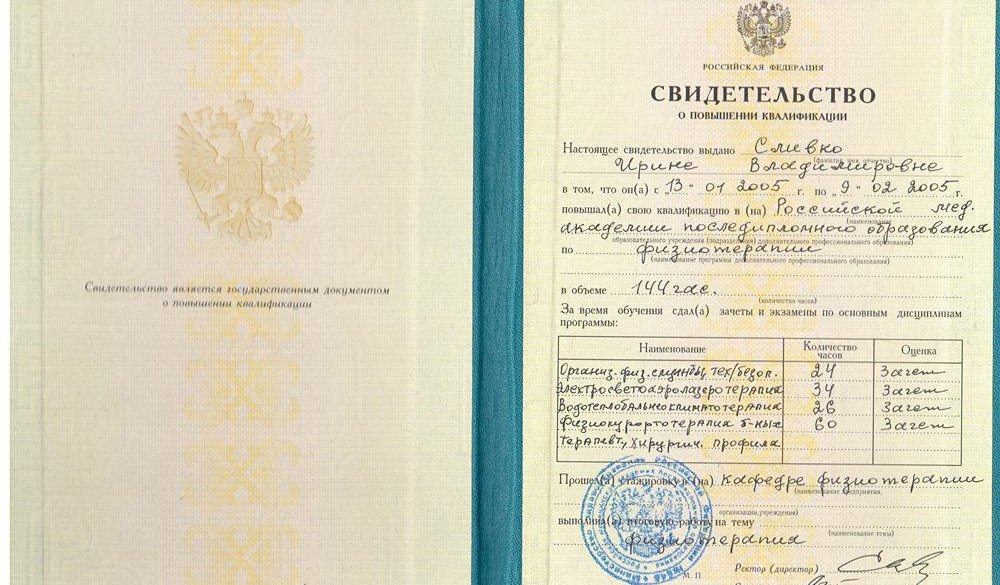 Свидетельство является государственным документом
о повышении квалификации
РОССИЙСКАЯ ФЕДЕРАЦИЯ
СВИДЕТЕЛЬСТВО
О ПОВЫШЕНИИ КВАЛИФИКАЦИИ
Настоящее свидетельство выдано Сливко
(фамилия, имя, отчество)
Ирине Владимировне
в том, что он(а) с „13" 01 2005 г. по „9" 02 2005 г.
повышал(а) свою квалификацию в (на) Российской мед.
(наименование
академии последипломного образования
образовательного учреждения (подразделения) дополнительного профессионального образования)
по физиотерапии
(наименование программы дополнительного профессионального образования)
в объеме 144 час.
(количество часов)
За время обучения сдал(а) зачеты и экзамены по основным дисциплинам
программы:
Наименование Количество часов Оценка
Организ. физ. службы, тех/безоп. 24 Зачет
Электросветоаэролазеротерапия 34 Зачет
Водотеплобальнеоклиматотерапия 26 Зачет
Физиокурортотерапия б-ных 60 Зачет
терапевт., хирургич. профиля
Прошел(а) стажировку в (на) кафедре физиотерапии
(наименование предприятия,
организации, учреждения)
выполнил(а) итоговую работу на тему
(наименование темы)
физиотерапия
Ректор (директор)
М. П.